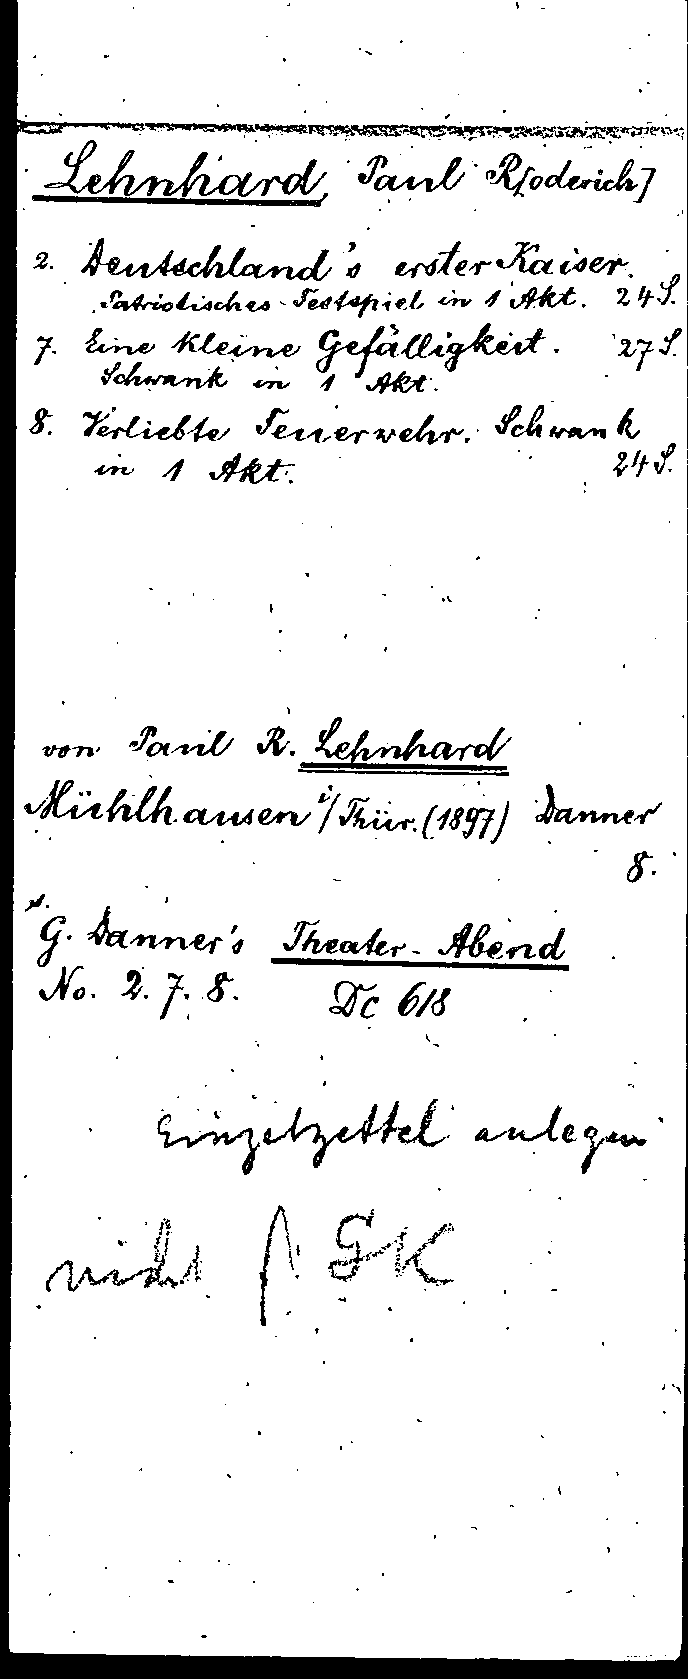 Lehnhard, Paul R[oderich]
2. Deutschland's erster Kaiser.
Patriotisches Festspiel in 1 Akt. 24 S.
7. Eine kleine Gefälligkeit. 27 S.
Schwank in 1 Akt.
8. Verliebte Feuerwehr. Schwank
in 1 Akt. 24 S.
von Paul R. Lehnhard
Mühlhausen i/Thür. (1897) Danner
8.
G. Danner's Theater-Abend
No. 2. 7. 8. Dc 618
Einzelzettel anlegen
nicht f. GK